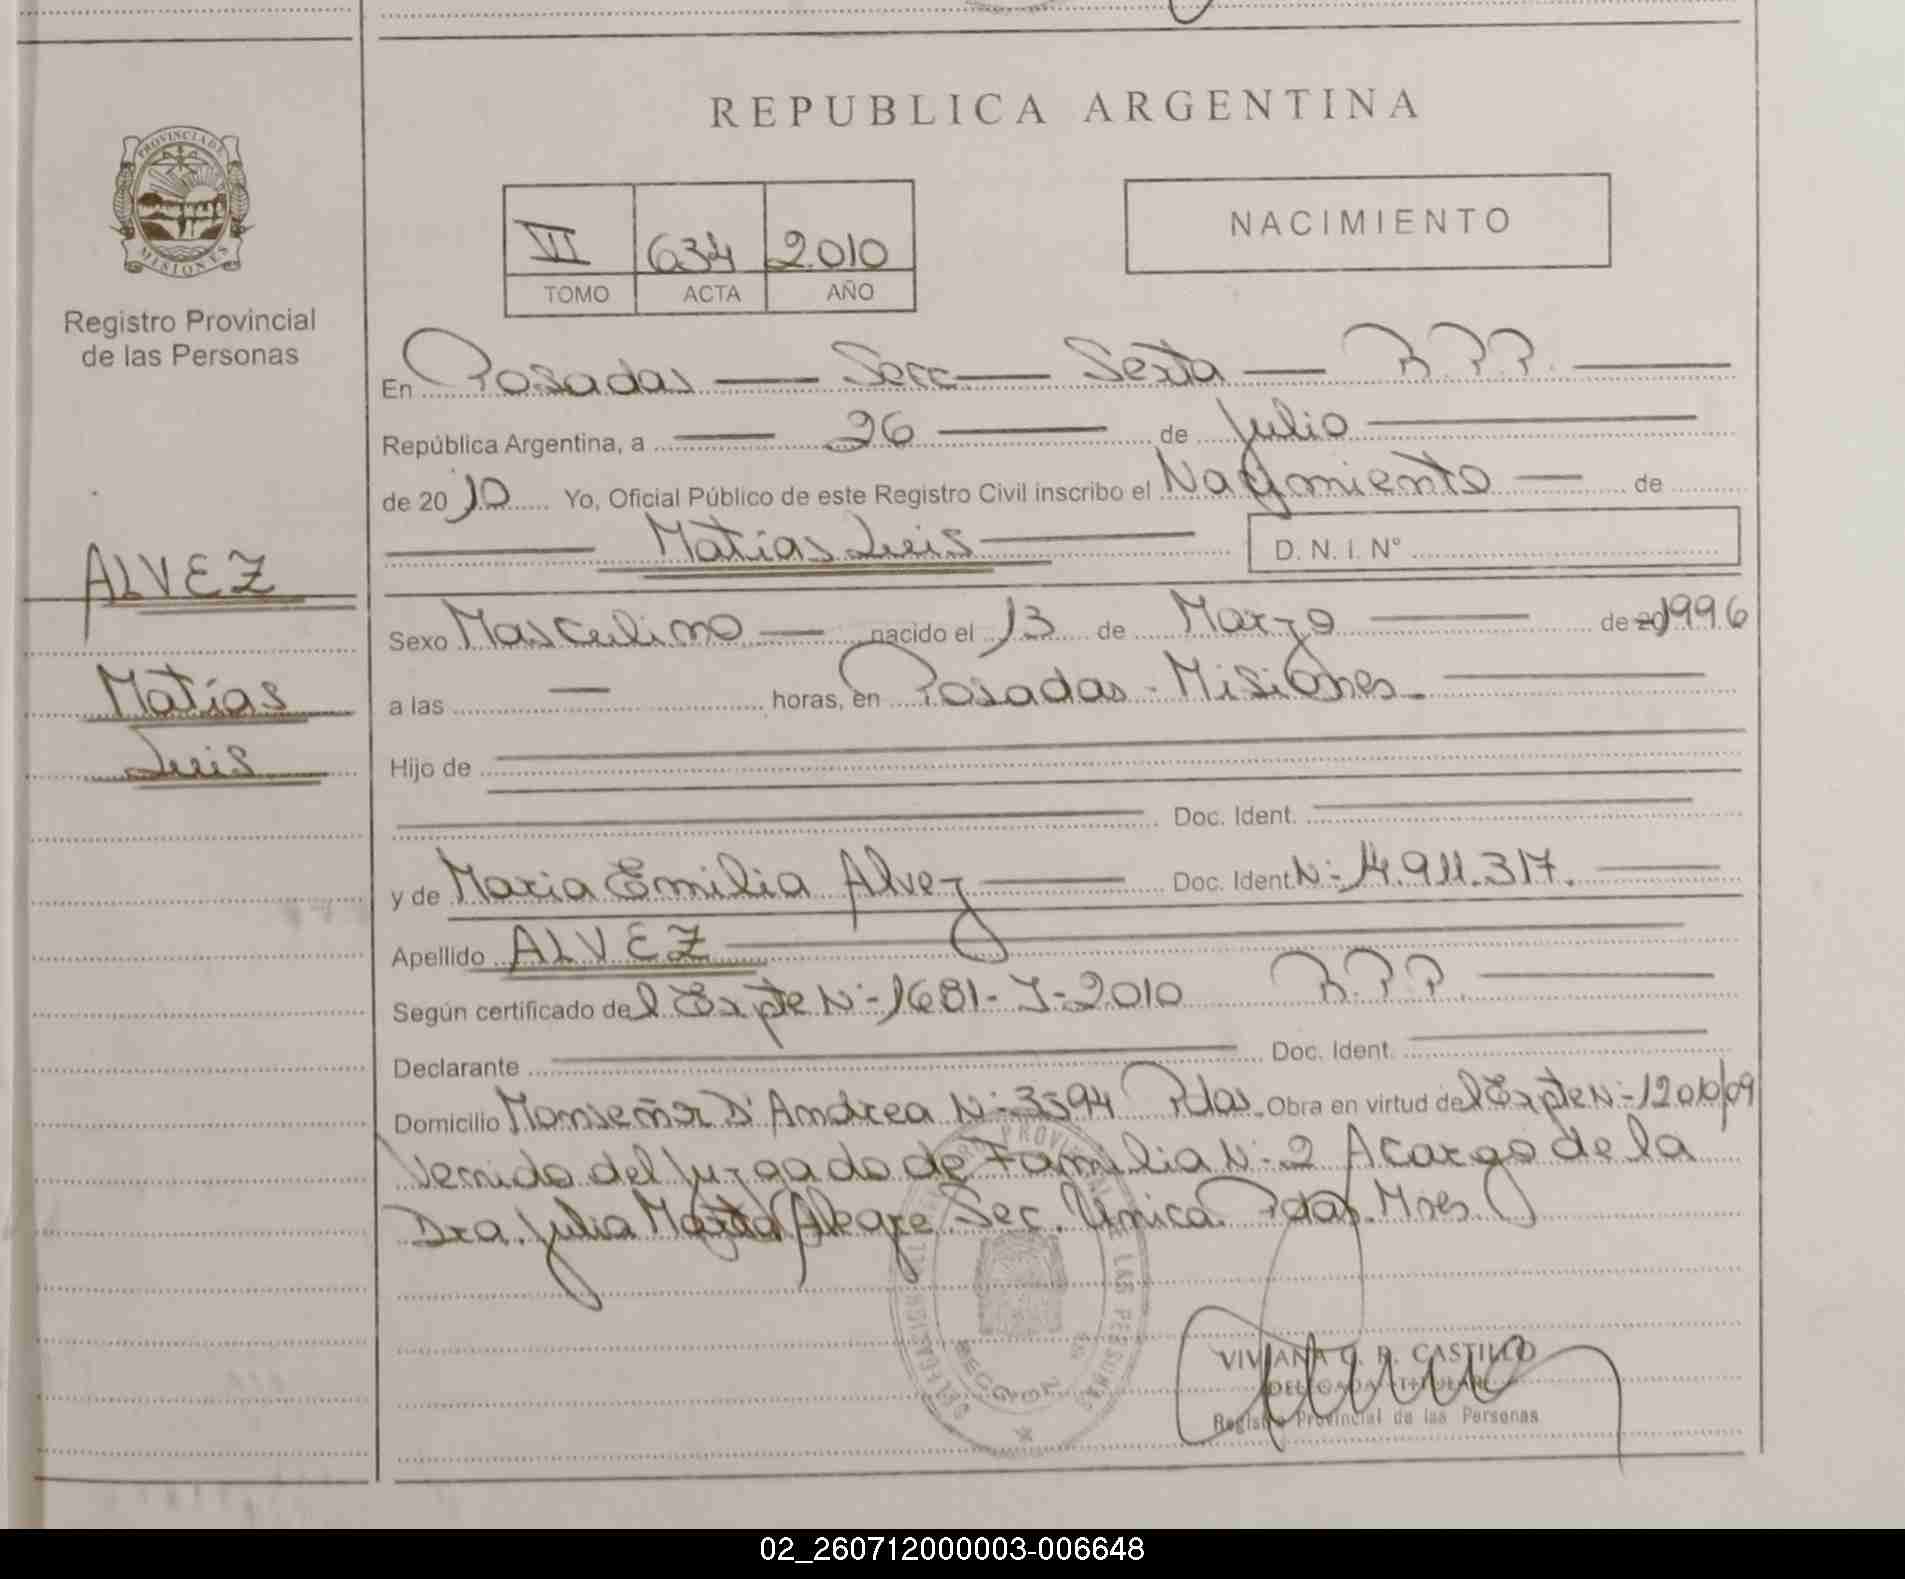 REPUBLICA ARGENTINA
PROVINCIA DE
MISIONES
Registro Provincial
de las Personas
NACIMIENTO
VII 634 2010
TOMO ACTA AÑO
En Posadas — Secc — Sexta — R.P.P. —
República Argentina, a — 26 — de Julio —
de 2010 Yo, Oficial Público de este Registro Civil inscribo el Nacimiento — de
— Matías Luis — D. N. I. N°
ALVEZ
Matías
Luis
Sexo Masculino — nacido el 13 de Marzo — de 20 1996
a las — horas, en Posadas - Misiones. —
Hijo de
Doc. Ident.
y de Maria Emilia Alvez — Doc. Ident. N:- 14.911.317. —
Apellido ALVEZ
Según certificado del Expte N:- 1681 - J - 2010 R.P.P. —
Declarante Doc. Ident.
Domicilio Monseñor D'Andrea N:- 3594 Pdas. Obra en virtud del Expte N:- 1200/09
Venido del Juzgado de Familia N:- 2 A cargo de la
Dra. Julia Alegre Sec. Unica. Pdas. Mnes
REGISTRO PROVINCIAL DE LAS PERSONAS
DELEGACION
SECCION 6ta
VIVIANA G. R. CASTILLO
DELEGADA TITULAR
Registro Provincial de las Personas
02_260712000003-006648